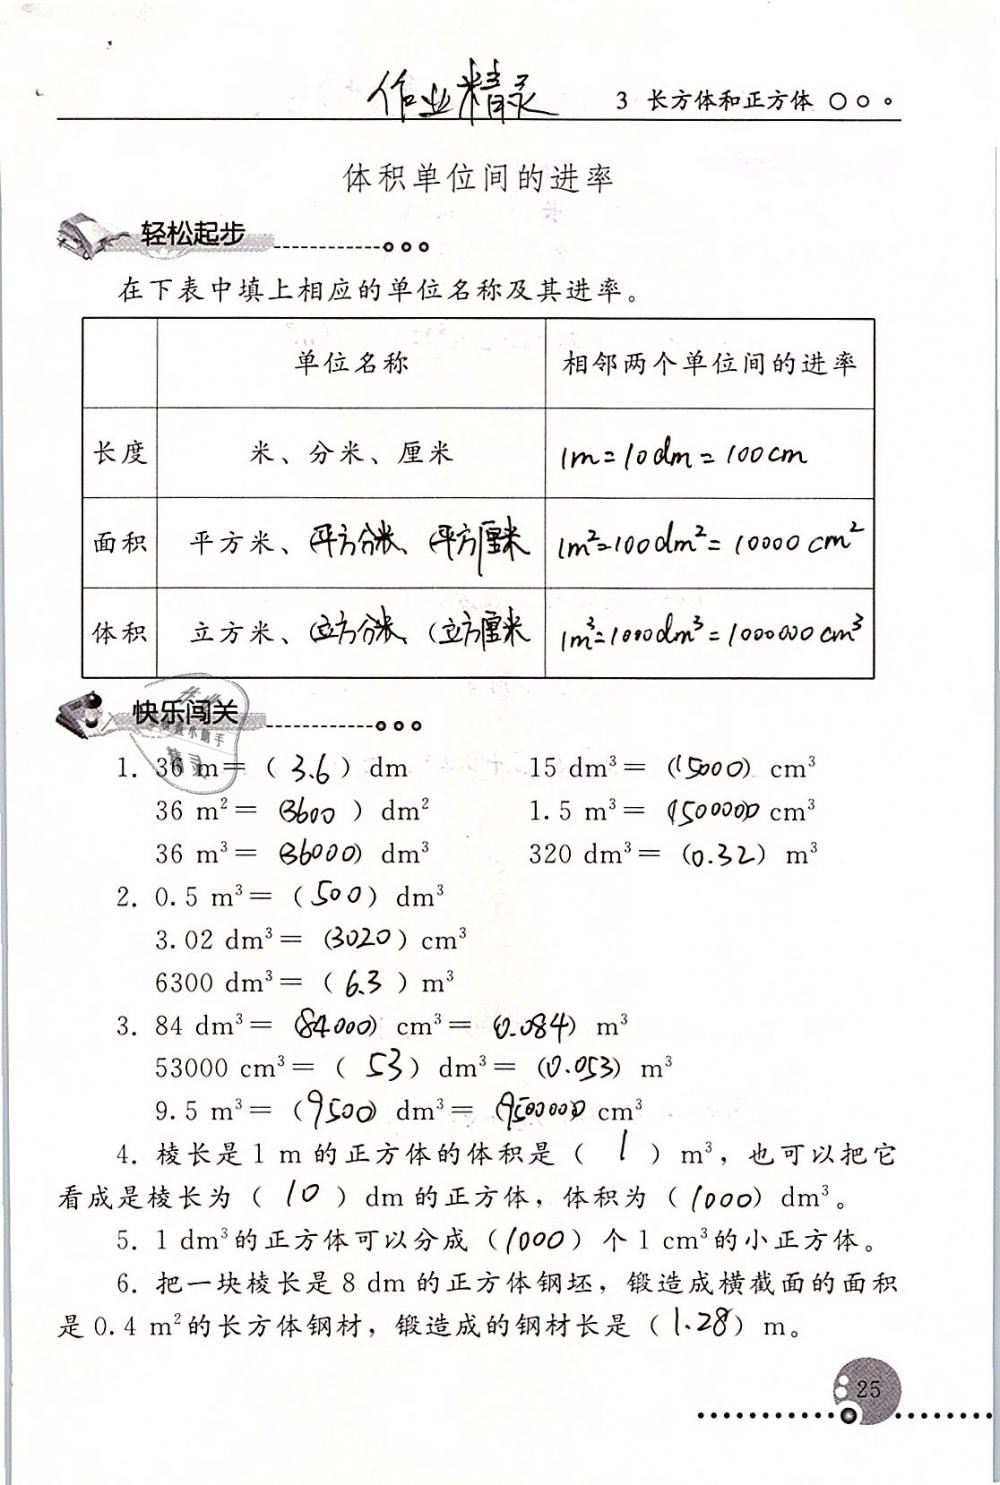 作业精灵
3 长方体和正方体
体积单位间的进率
轻松起步
在下表中填上相应的单位名称及其进率。
单位名称 相邻两个单位间的进率
长度 米、分米、厘米 1m=10dm=100cm
面积 平方米、(平方分米、(平方厘米 1m²=100dm²=10000cm²
体积 立方米、(立方分米、(立方厘米 1m³=1000dm³=1000000cm³
快乐闯关
1. 36 m=(3.6)dm 15 dm³=(15000)cm³
36 m²=(3600)dm² 1.5 m³=(1500000)cm³
36 m³=(36000)dm³ 320 dm³=(0.32)m³
2. 0.5 m³=(500)dm³
3.02 dm³=(3020)cm³
6300 dm³=(6.3)m³
3. 84 dm³=(84000)cm³=(0.084)m³
53000 cm³=(53)dm³=(0.053)m³
9.5 m³=(9500)dm³=(9500000)cm³
4. 棱长是 1 m 的正方体的体积是(1)m³，也可以把它
看成是棱长为(10)dm 的正方体，体积为(1000)dm³。
5. 1 dm³的正方体可以分成(1000)个 1 cm³的小正方体。
6. 把一块棱长是 8 dm 的正方体钢坯，锻造成横截面的面积
是 0.4 m²的长方体钢材，锻造成的钢材长是(1.28)m。
25